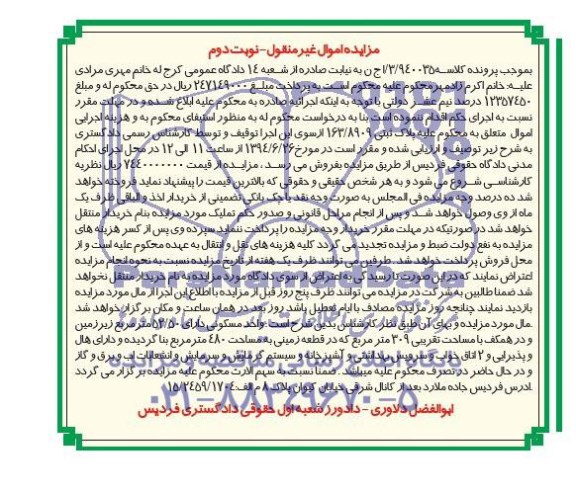 مزایده اموال غیر منقول - نوبت دوم
بموجب پرونده کلاسه ۳/۹۴۰۰۳۵/اج ن به نیابت صادره از شعبه ۱۴ دادگاه عمومی کرج له خانم مهری مرادی
علیه: خانم اکرم زادمهر محکوم علیه محکوم است به پرداخت مبلغ ۲۴۷۱۴۹۰۰۰ ریال در حق محکوم له و مبلغ
۱۲۳۵۷۴۵۰ درصد نیم عشر دولتی با توجه به اینکه اجرائیه صادره به محکوم علیه ابلاغ شده و در مهلت مقرر
نسبت به اجرای حکم اقدام ننموده است بنا به درخواست محکوم له به منظور استیفای محکوم به و هزینه اجرایی
اموال متعلق به محکوم علیه پلاک ثبتی ۱۶۳/۸۹۰۹ از سوی این اجرا توقیف و توسط کارشناس رسمی دادگستری
به شرح زیر توصیف و ارزیابی شده و مقرر است در مورخ ۱۳۹۴/۶/۲۶ از ساعت ۱۱ الی ۱۲ در محل اجرای احکام
مدنی دادگاه حقوقی فردیس از طریق مزایده بفروش می رسد. مزایده از قیمت ۷۴۴۰۰۰۰۰۰۰ ریال نظریه
کارشناسی شروع می شود و به هر شخص حقیقی و حقوقی که بالاترین قیمت را پیشنهاد نماید فروخته خواهد
شد ده درصد وجه مزایده فی المجلس به صورت وجه نقد یا چک بانکی تضمینی از خریدار اخذ و الباقی ظرف یک
ماه از وی وصول خواهد شد و پس از انجام مراحل قانونی و صدور حکم تملیک مورد مزایده بنام خریدار منتقل
خواهد شد در صورتیکه در مهلت مقرر خریدار وجه مزایده را پرداخت ننماید سپرده وی پس از کسر هزینه های
مزایده به نفع دولت ضبط و مزایده تجدید می گردد کلیه هزینه های نقل و انتقال به عهده محکوم علیه است و از
محل فروش پرداخت خواهد شد. طرفین می توانند ظرف یک هفته از تاریخ مزایده نسبت به نحوه انجام مزایده
اعتراض نمایند که در این صورت تا رسیدگی به اعتراض از سوی دادگاه مورد مزایده به نام خریدار منتقل نخواهد
شد ضمنا طالبین به شرکت در مزایده می توانند ظرف پنج روز قبل از مزایده با اطلاع این اجرا از مال مورد مزایده
بازدید نمایند چنانچه روز مزایده مصادف با ایام تعطیل باشد روز بعد در همان ساعت و مکان برگزار خواهد شد
.مال مورد مزایده و بهای آن طبق نظر کارشناس بدین شرح است: واحد مسکونی دارای ۵۳/۵۰ متر مربع زیرزمین
و در همکف با مساحت تقریبی ۳۰۹ متر مربع که در قطعه زمینی به مساحت ۴۸۰ متر مربع بنا گردیده و دارای هال
و پذیرایی و ۲ اتاق خواب و سرویس بهداشتی و آشپزخانه و سیستم گرمایش و سرمایش و انشعابات آب و برق و گاز
و در حال حاضر در تصرف محکوم علیه میباشد. ضمنا نسبت به سهم الارث محکوم علیه مزایده برگزار می گردد
.ادرس فردیس جاده ملارد بعد از کانال شرقی خیابان کیوان پلاک ۸ م الف ۱۵/۲۴۵۹/۱۷۰۴
ابوالفضل دلاوری - دادورز شعبه اول حقوقی دادگستری فردیس
۰۲۱-۸۸۳۴۹۶۷۰-۵